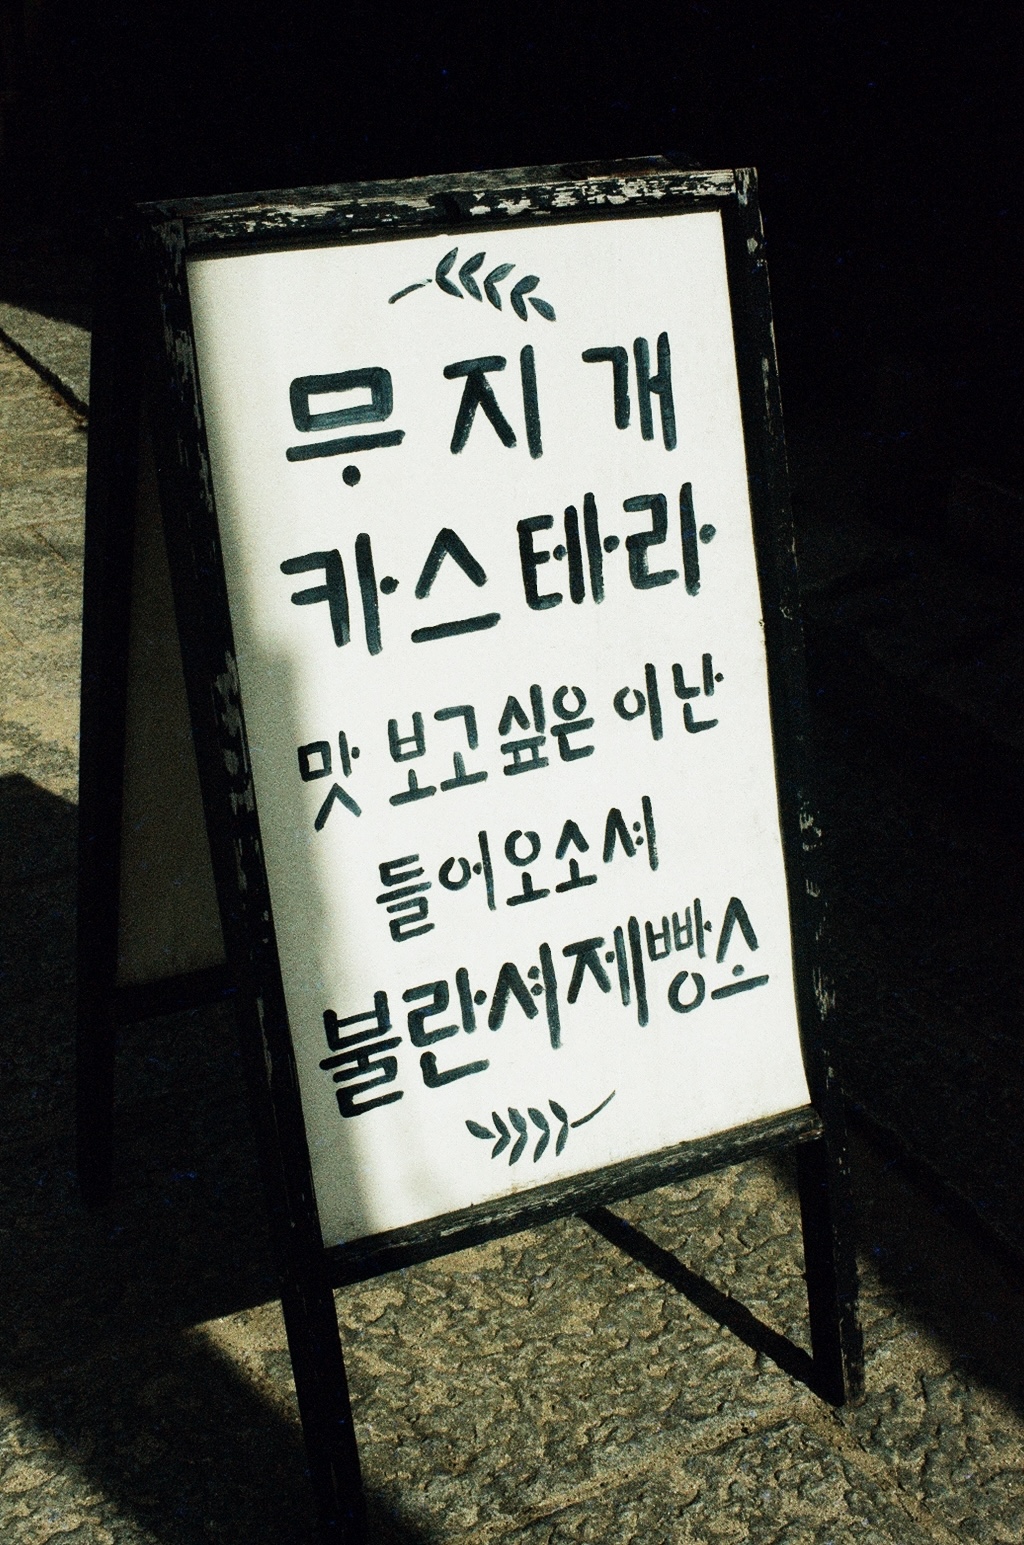 무지개
카스테라
맛 보고싶은 이난
들어오소셔
불란셔제빵소